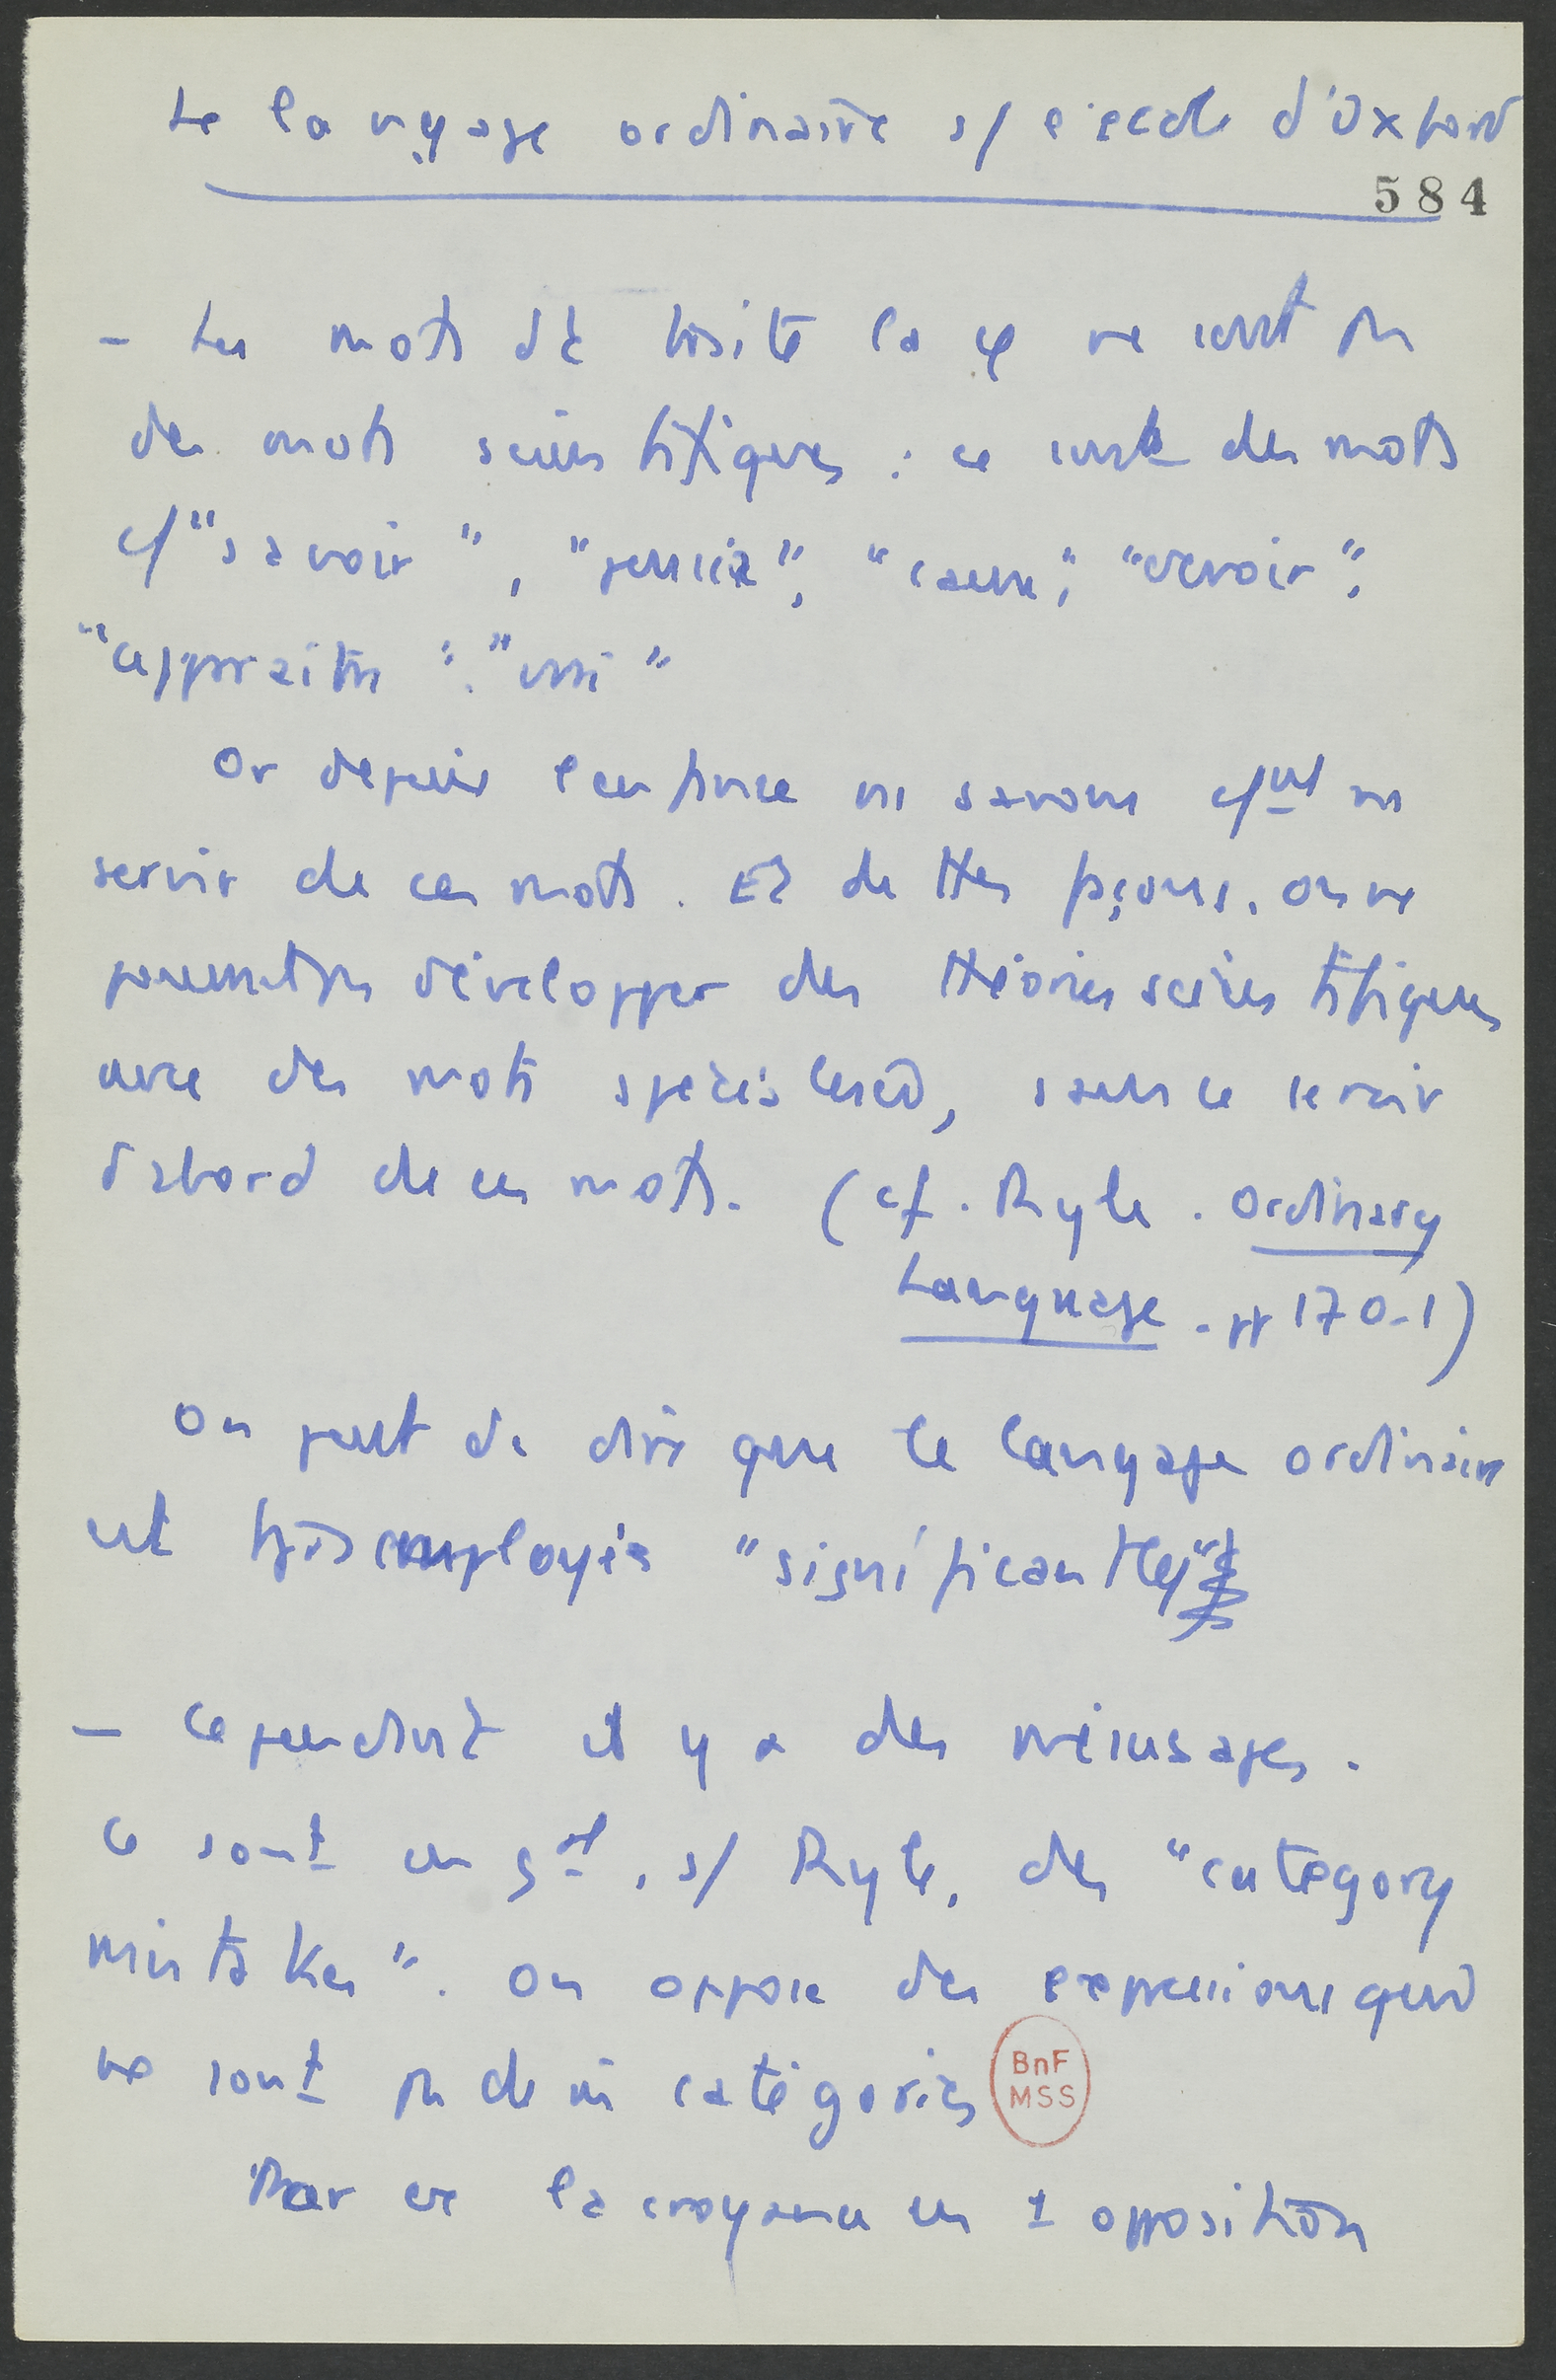 Le langage ordinaire s/ l'école d'Oxford
584
- Les mots dt traite la φ ne sont pas
des mots scientifiques : ce sont des mots
c/ "savoir", "pensée", "cause", "devoir",
"apparaître", "vrai"
Or depuis l'enfance ns savons c/nt ns
servir de ces mots. Et de ttes façons, on ne
pourrait pas développer des théories scientifiques
avec des mots spécialisés, sans se servir
d'abord de ces mots. (cf. Ryle. Ordinary
Language. pp 170-1)
On peut dc dire que le langage ordinaire
est tjrs employé "significantly"
- Cependant il y a des mésusages.
Ce sont en gal, s/ Ryle, des "category
mistakes". On oppose des expressions qui
ne sont pas de m catégories
Par ex la croyance en 1 opposition
BnF
MSS